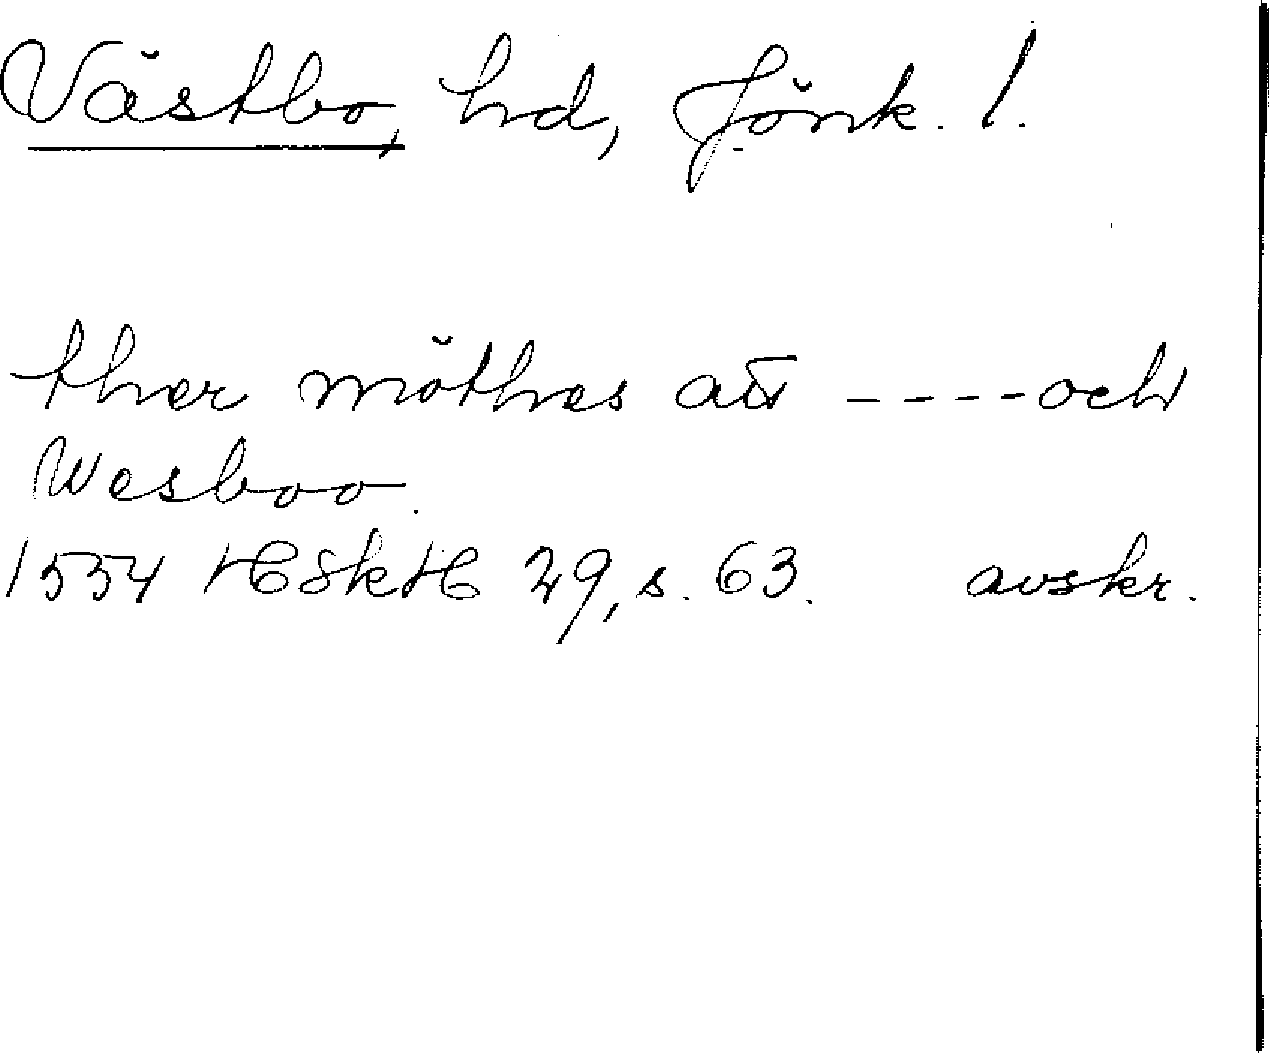 Västbo, hd, Jönk. l.
ther möthes att ----och
Wesboo.
1554 HSkH 29, s. 63. avskr.